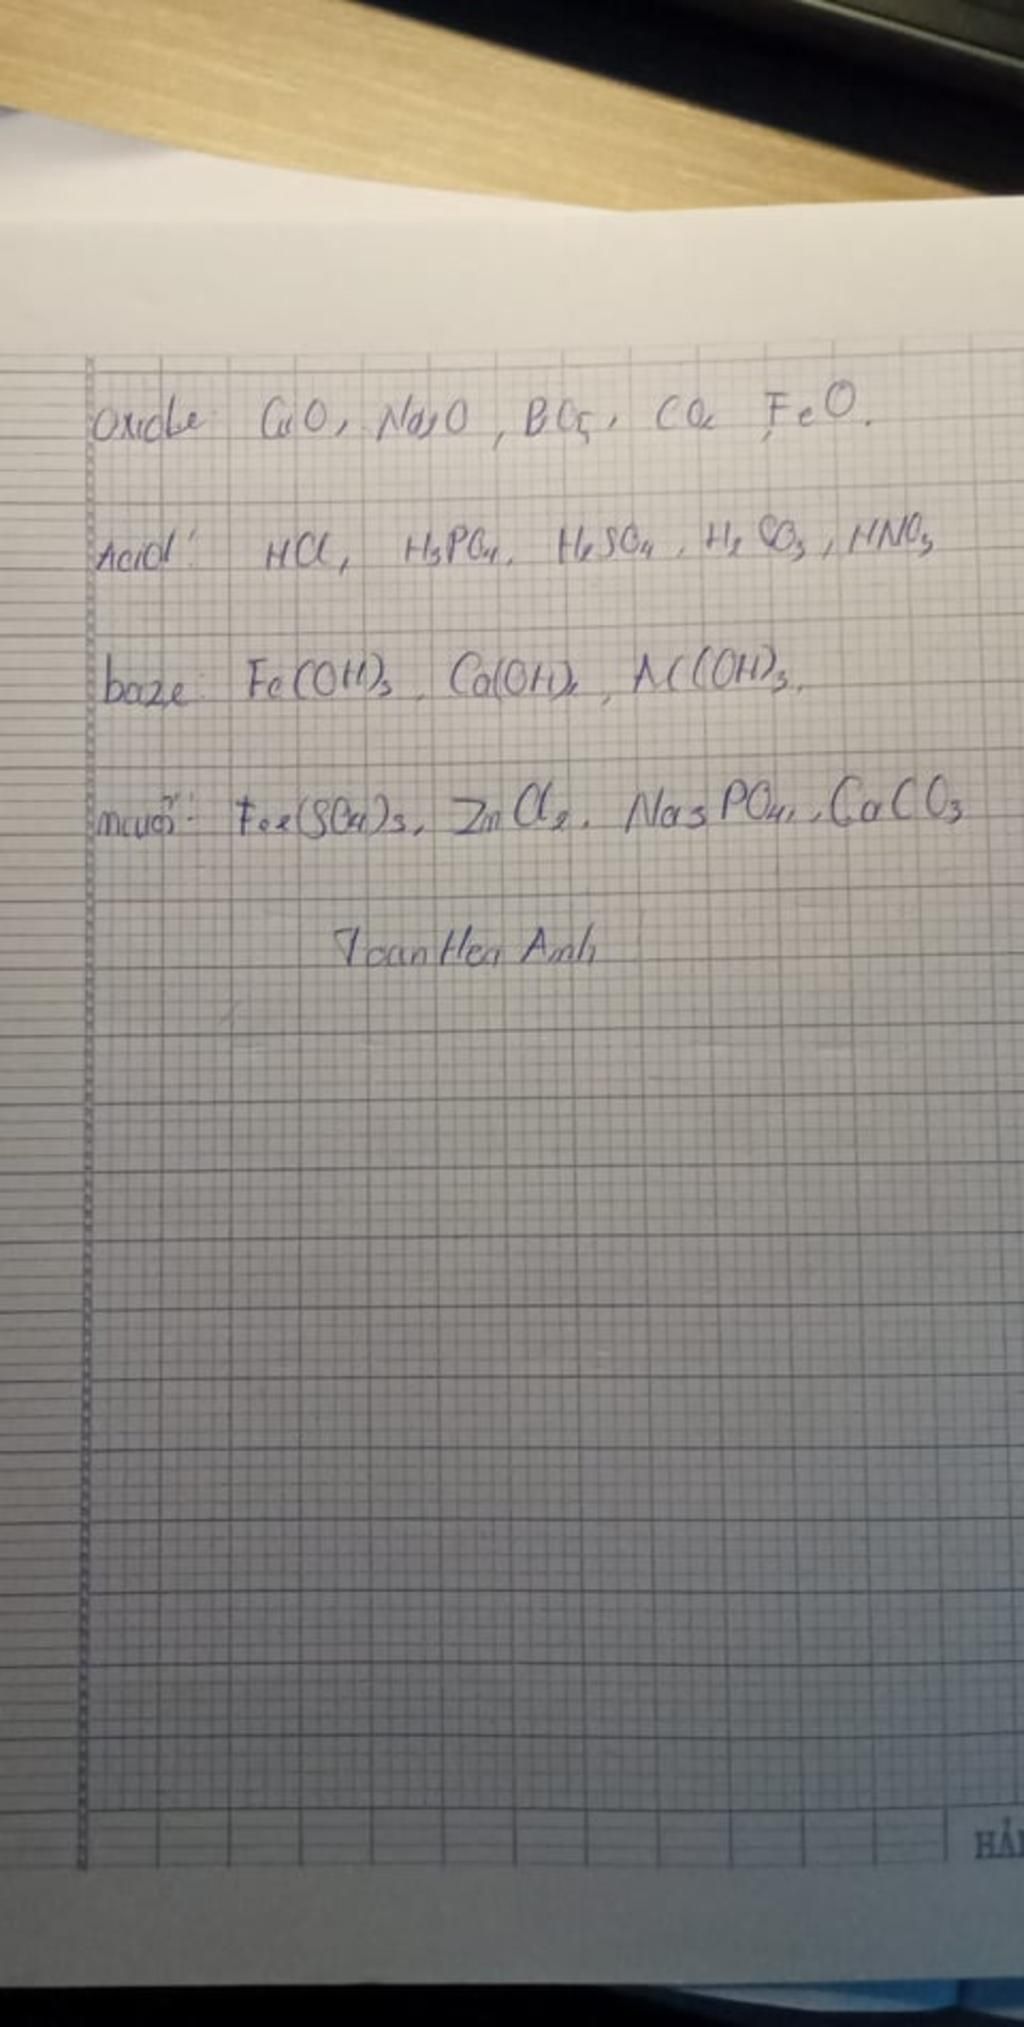 Oxide: CuO, Na2O, BO5, CO2, FeO.
Acid: HCl, H3PO4, H2SO4, H2CO3, HNO3
baze: Fe(OH)3, Ca(OH)2, Al(OH)3.
muối: Fe2(SO4)3, ZnCl2, Na3PO4, CaCO3
Anh
HẢI